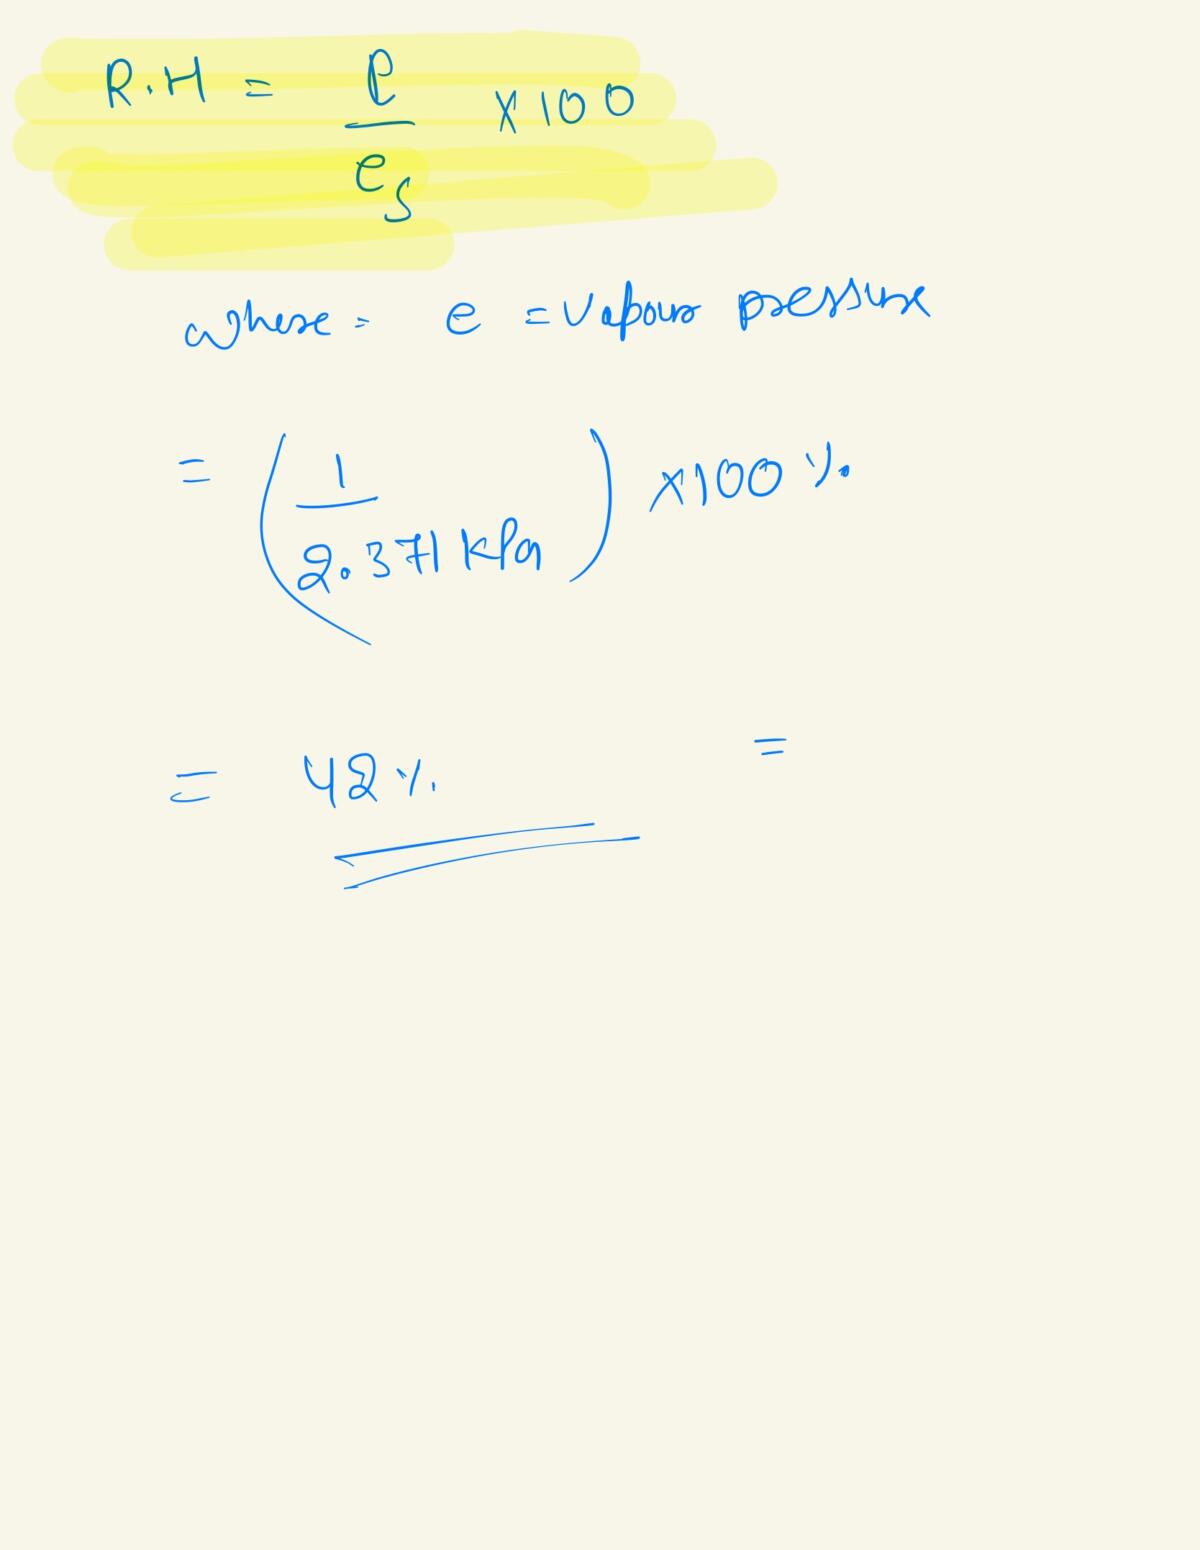 R.H = e/es × 100
where = e = vapour pressure
= (1/2.371 kPa) ×100 %.
= 42 %. =